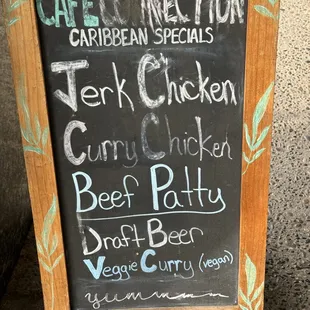 CAFE CONNECTION
CARIBBEAN SPECIALS
Jerk Chicken
Curry Chicken
Beef Patty
Draft Beer
Veggie Curry (vegan)
yummmm